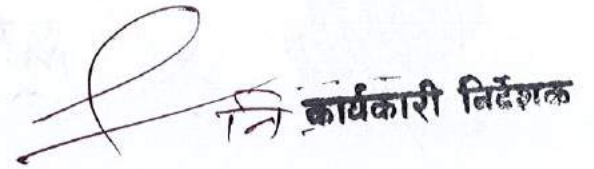 नि कार्यकारी निर्देशक